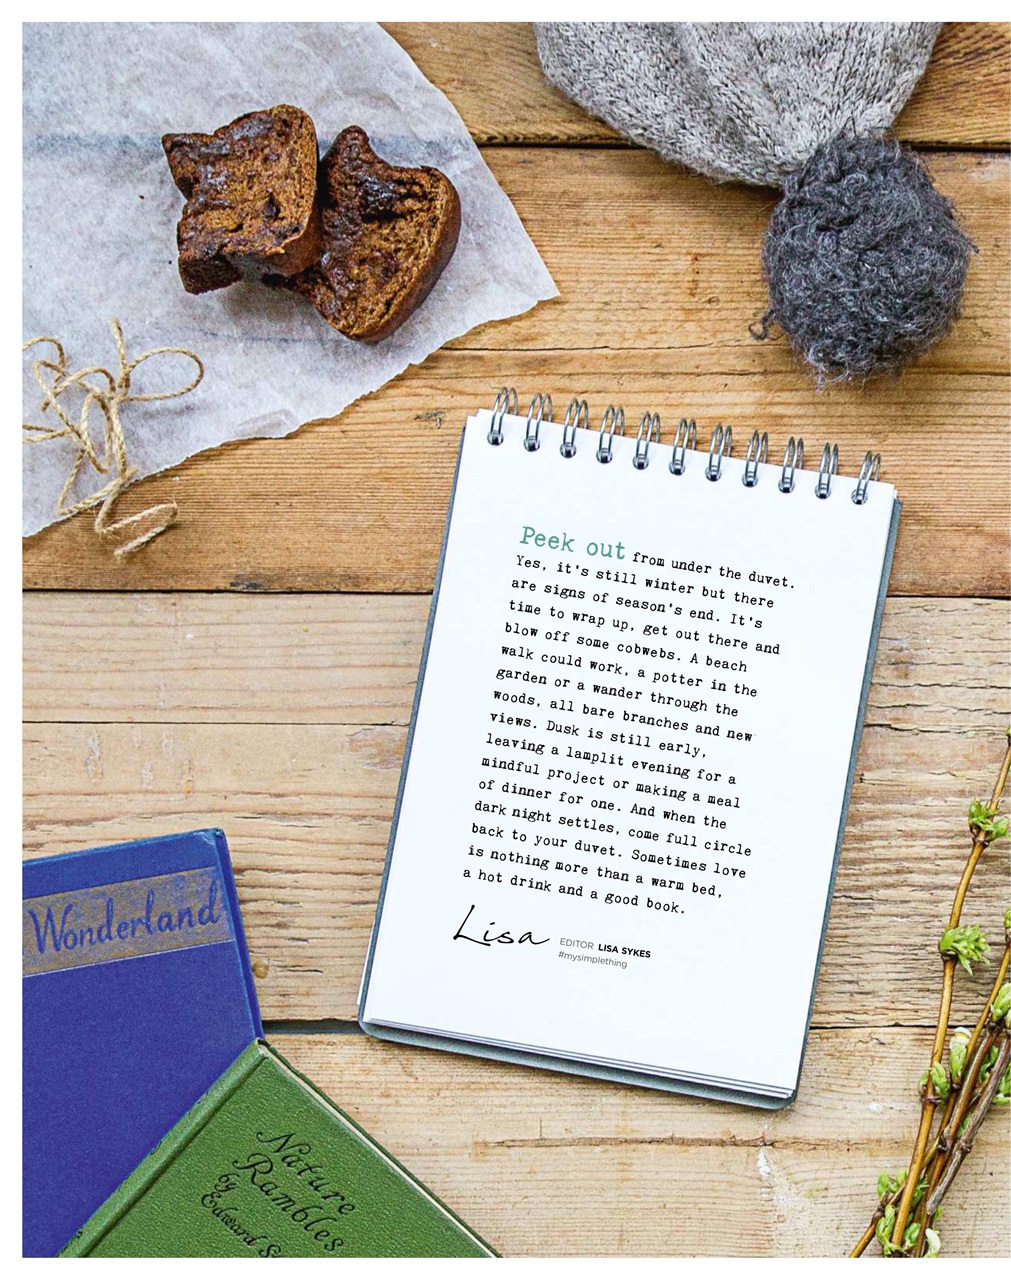 Peek out from under the duvet.
Yes, it's still winter but there
are signs of season's end. It's
time to wrap up, get out there and
blow off some cobwebs. A beach
walk could work, a potter in the
garden or a wander through the
woods, all bare branches and new
views. Dusk is still early,
leaving a lamplit evening for a
mindful project or making a meal
of dinner for one. And when the
dark night settles, come full circle
back to your duvet. Sometimes love
is nothing more than a warm bed,
a hot drink and a good book.
Lisa
EDITOR LISA SYKES
#mysimplething
Wonderland
Nature
Rambles
by
Edward